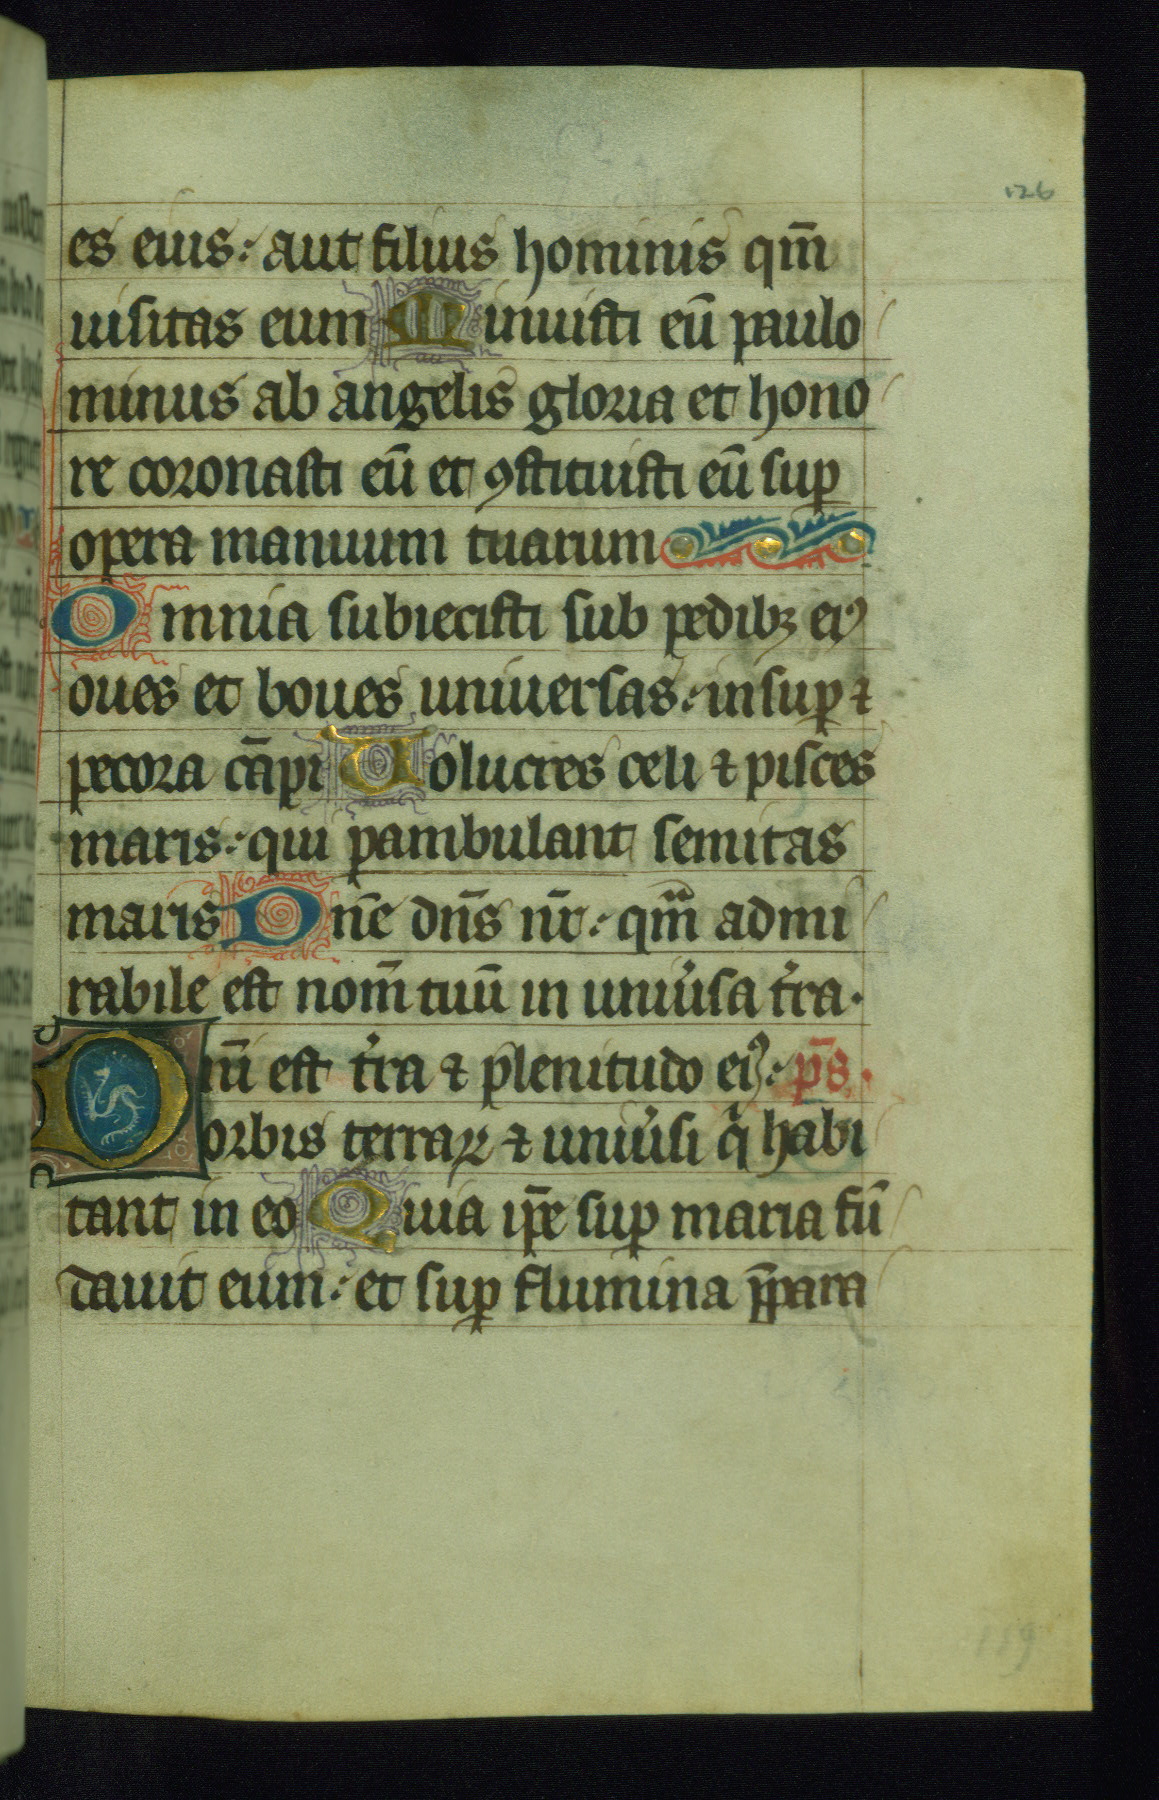 126
es eius: aut filius hominis qm̄
uisitas eum Minuisti eū paulo
minus ab angelis gloria et hono
re coronasti eū et ꝯstituisti eū suꝑ
opera manuum tuarum
Omnia subiecisti sub pedibꝫ eiꝰ
oues et boues universas: insuꝑ ⁊
pecora cāpi Uolucres celi ⁊ pisces
maris: qui ꝑambulant semitas
maris Dn̄e dn̄s nr̄: qm̄ admi
rabile est nom̄ tuū in uniu̾sa t̾ra.
Dn̄i est t̾ra ⁊ plenitudo eiꝰ: p̄s.
orbis terraꝝ ⁊ uniu̾si qͥ habi
tant in eo Quia ip̄e suꝑ maria fū
dauit eum: et suꝑ flumina p̄para
159